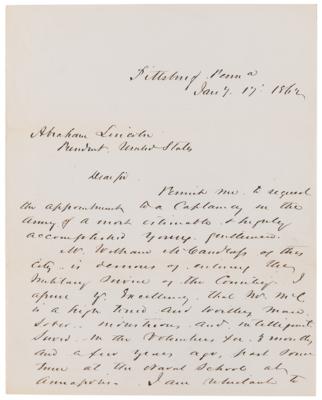 Pittsburg Penna
Jany. 17. 1862
Abraham Lincoln
President United States
Dear Sir
Permit me to request
the appointment to a Captaincy in the
Army of a most estimable & highly
accomplished young gentleman.
Mr. William McCandless of this
City is desirous of entering the
Military Service of the Country I
assure Yr Excellency that Mr. McC
is a high toned and worthy man
Sober industrious and intelligent
Served in the Volunteers for 3 months
and a few years ago, past some
time at the Naval School at
Annapolis. I am reluctant to